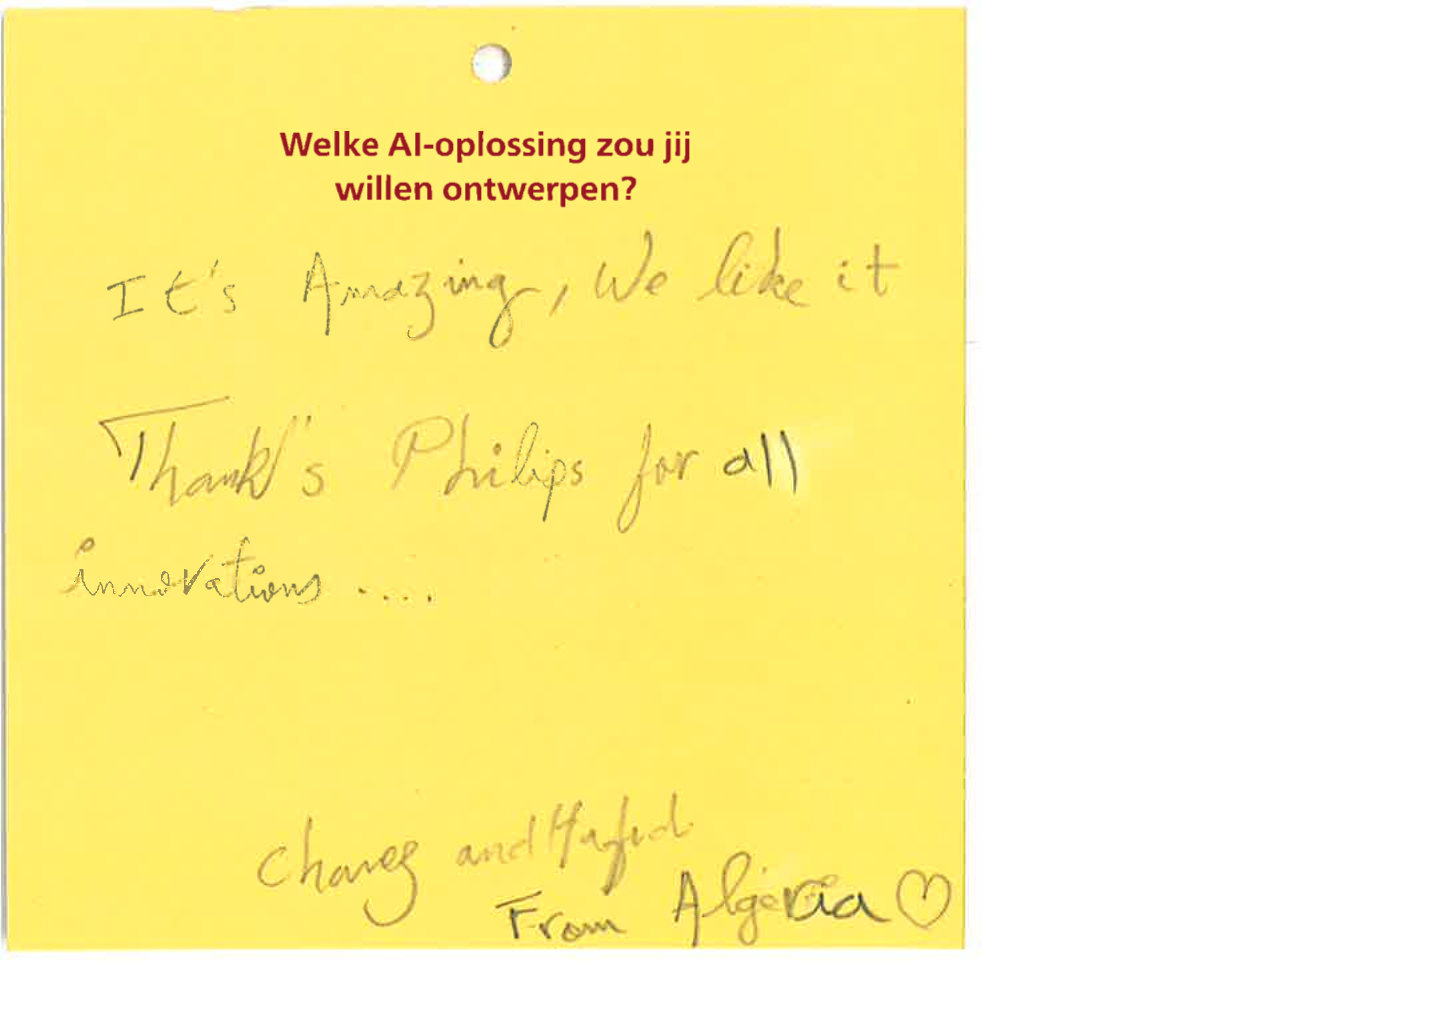 Welke AI-oplossing zou jij
willen ontwerpen?
It's Amazing, We like it
Thank's Philips for all
innovations ....
and
From Algeria ♡